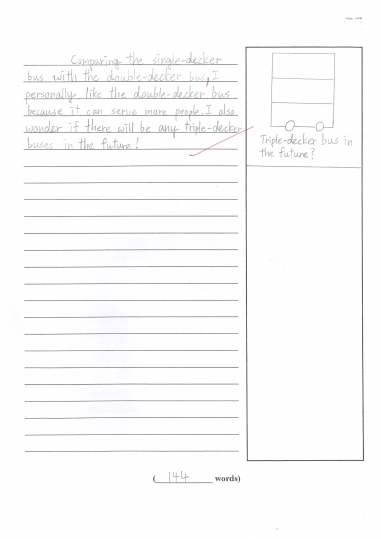 Comparing the single-decker
bus with the double-decker bus, I
personally like the double-decker bus
because it can serve more people. I also
wonder if there will be any triple-decker
buses in the future!
Triple-decker bus in
the future?
( 144 words)